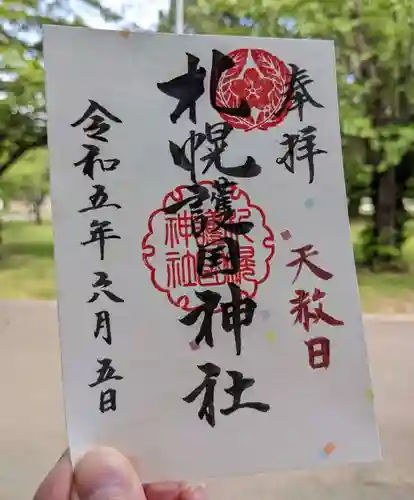 奉拝
天赦日
札幌護国神社
札幌護国神社
令和五年六月五日